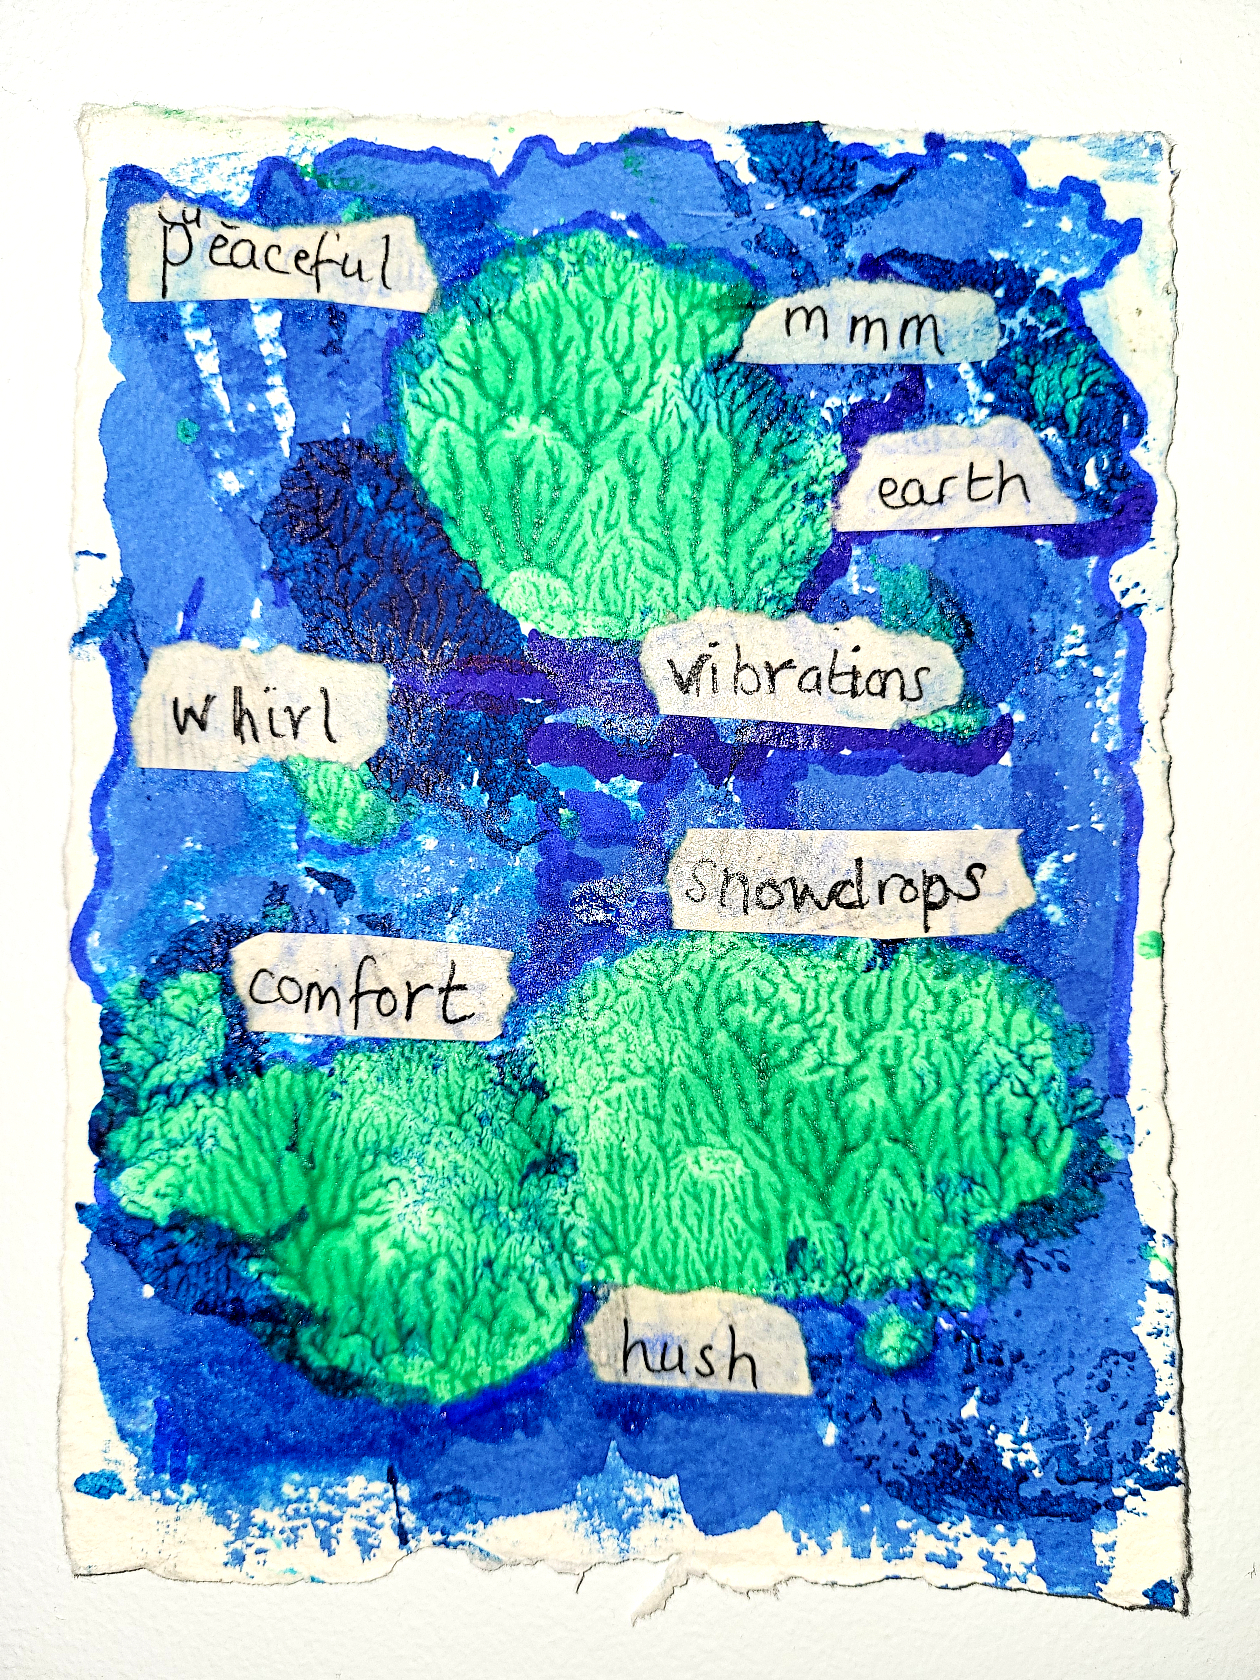 peaceful
mmm
earth
vibrations
whirl
snowdrops
comfort
hush